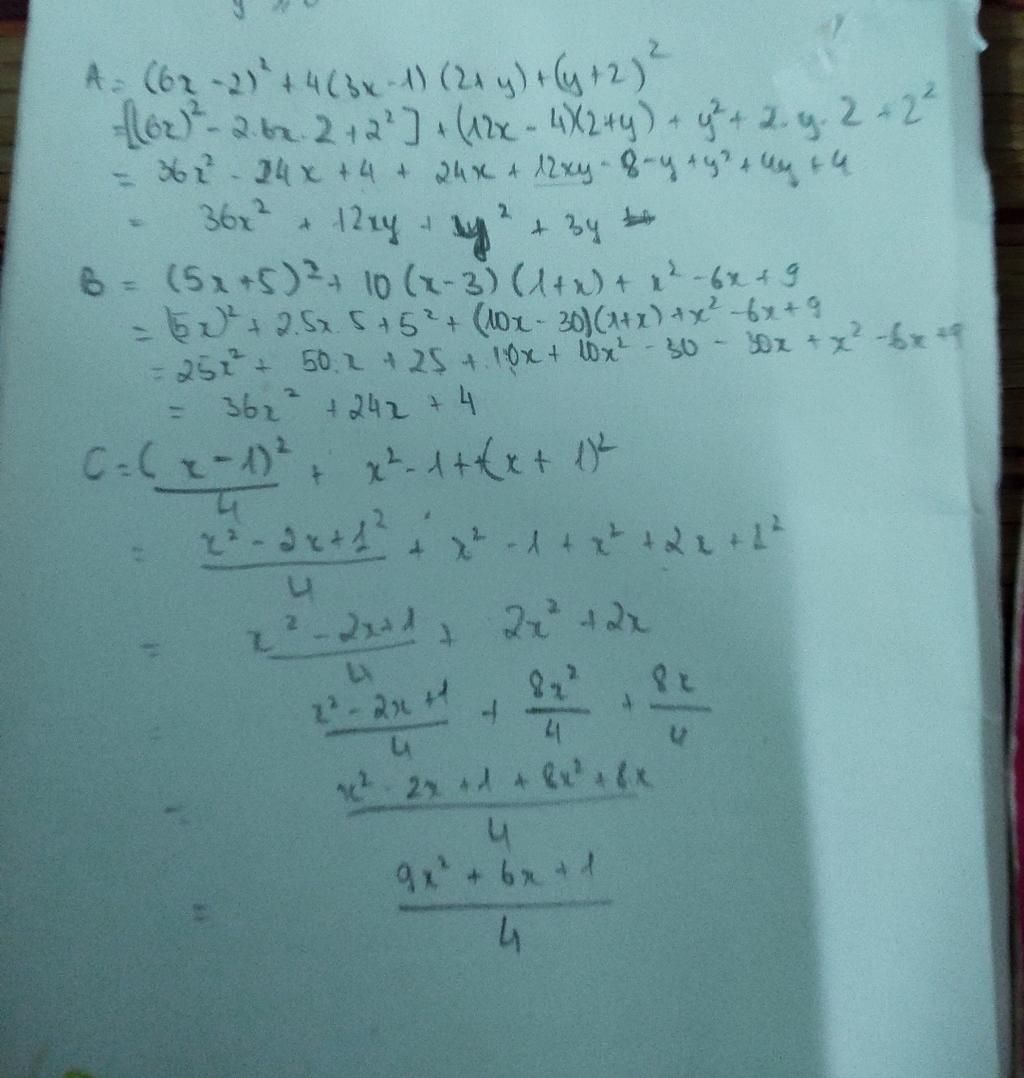 A = (6x - 2)² + 4(3x - 1)(2+y) + (y+2)²
= [(6x)² - 2.6x.2 + 2²] + (12x - 4)(2+y) + y² + 2.y.2 + 2²
= 36x² - 24x + 4 + 24x + 12xy - 8 - y + y² + 4y + 4
= 36x² + 12xy + y² + 3y
B = (5x+5)² + 10(x-3)(1+x) + x² - 6x + 9
= (5x)² + 2.5x.5 + 5² + (10x - 30)(1+x) + x² - 6x + 9
= 25x² + 50.x + 25 + 10x + 10x² - 30 - 30x + x² - 6x + 9
= 36x² + 24x + 4
C = (x - 1)²/4 + x² - 1 + (x + 1)²
= x² - 2x + 1²/4 + x² - 1 + x² + 2x + 1²
= x² - 2x + 1/4 + 2x² + 2x
= x² - 2x + 1/4 + 8x²/4 + 8x/4
= x² - 2x + 1 + 8x² + 8x/4
= 9x² + 6x + 1/4